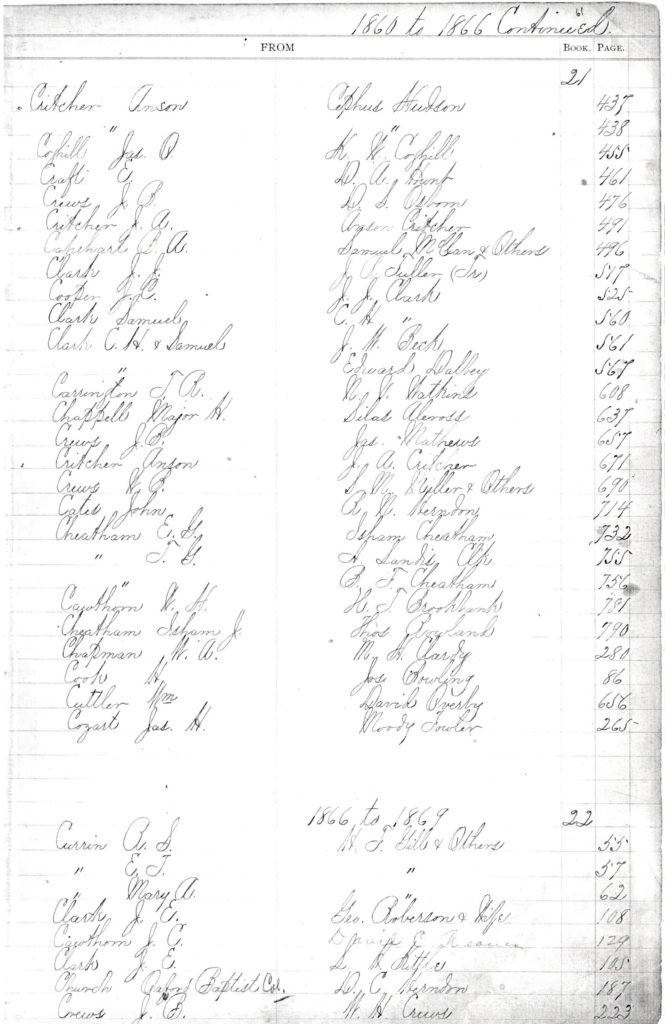 61
1860 to 1866 Continued.
FROM BOOK. PAGE.
21
Critcher Anson Cephus Hudson 437
" " 438
Coghill Jas. O. K. W. Coghill 455
Craft E. D. A. Hunt 461
Crews J. B. L. S. Osborn 476
Critcher J. A. Anson Critcher 491
Capehart A. Samuel & Others 496
Clark J. J. J. Fuller (Tr) 517
Cooper J. C. J. J. Clark 525
Clark Samuel E. H. " 560
Clark E. H. & Samuel J. W. Beck 561
" Edward Dalbey 567
Carrington T. R. N. J. Watkins 608
Chappell Major H. Silas 637
Crews J. B. Jas. Mathews 657
Critcher Anson J. A. Critcher 671
Crews W. B. S. M. & Others 690
Cates John R. N. Herndon 714
Cheatham E. G. Isham Cheatham 732
" T. G. A Landis Clk 755
" B. T. Cheatham 756
Cawthorn W. H. H. T. Brookbank 781
Cheatham Isham J. Thos 790
Chapman W. A. M. H. Clardy 280
Cook H. Jos. Bowling 86
Cuttler Wm David Overby 656
Cozart Jas. H. Moody Fowler 265
1866 to 1869 22
Currin A. S. H. T. Gill & Others 55
" E. T. " 57
" Mary A. " 62
Clark J. E. Geo. Roberson & Wife 108
Cawthorn J. C. David E. 129
Clark J. E. L. A. 105
Church Baptist Col. D. C. Herndon 187
Crews J. B. W. H. Crews 223